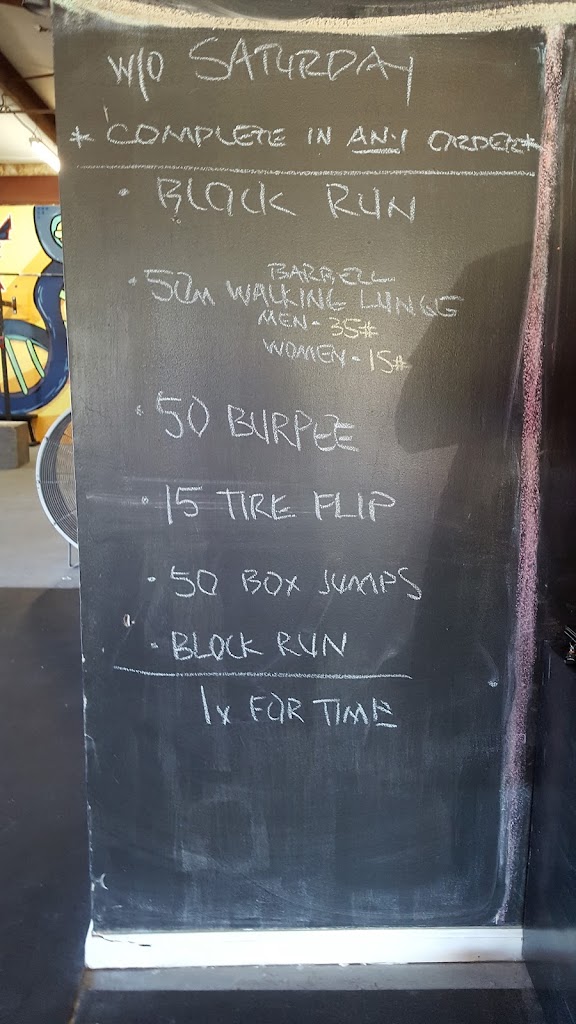 W/O SATURDAY
* COMPLETE IN ANY ORDER *
• BLOCK RUN
BARBELL
• 50M WALKING LUNGE
MEN - 35#
WOMEN - 15#
• 50 BURPEE
• 15 TIRE FLIP
• 50 BOX JUMPS
• BLOCK RUN
1x FOR TIME